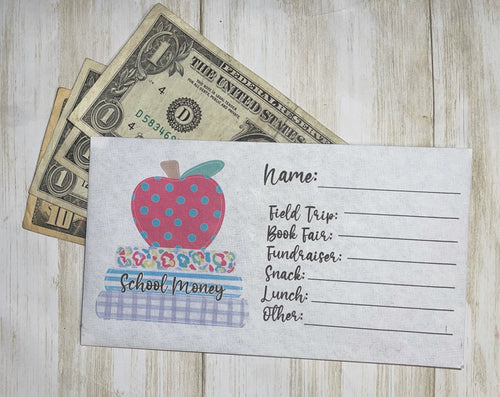 FEDERAL RESERVE
THE UNITED STATES
1
4
D
4
1
1
10
School Money
Name:
Field Trip:
Book Fair:
Fundraiser:
Snack:
Lunch:
Other: